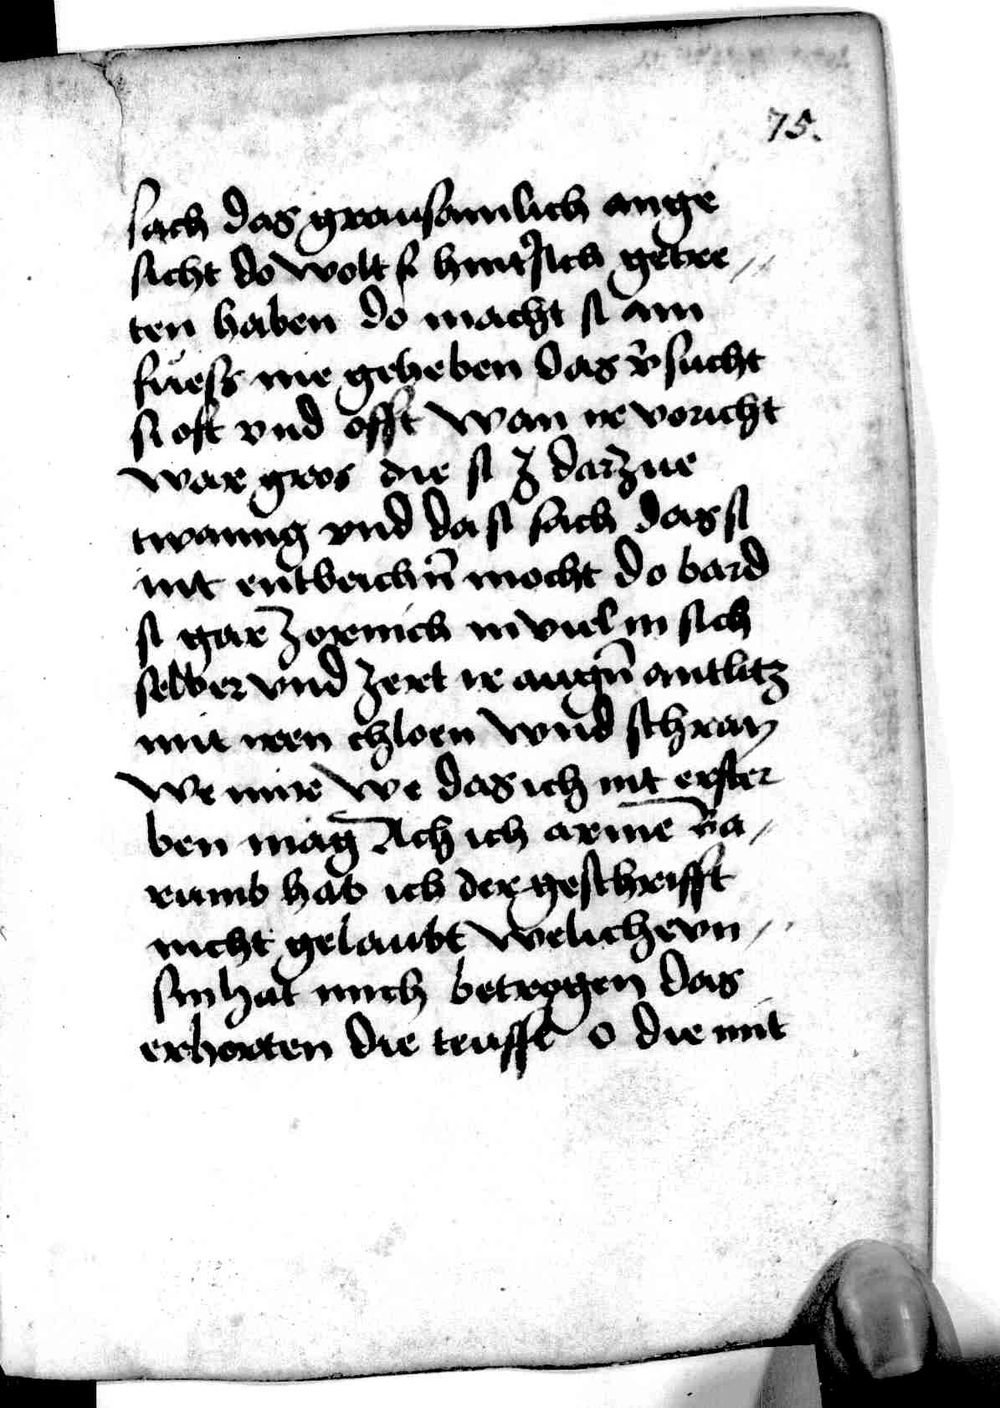 75.
sach das grausamlich ange
sicht do wolt si hint͛sich getre //
ten haben do macht si ain
fuess nie geheben das v͛sucht
si oft vnd offt wan ir voricht
war gros die si z darzue
twanng vnd da si sach das si
nit entbeichn̄ mocht do bard
si gar zornich viel in sich
selber vnd zert ir augn̄ antlitz
mit iren chloen vnd schray
we mire we das ich nit erster
ben mag Ach ich arme ba /
rumb hab ich der geschrifft
nicht gelaubt welicher vn //
sin hat mich betrogen das
erhorten die teuffl o die mit